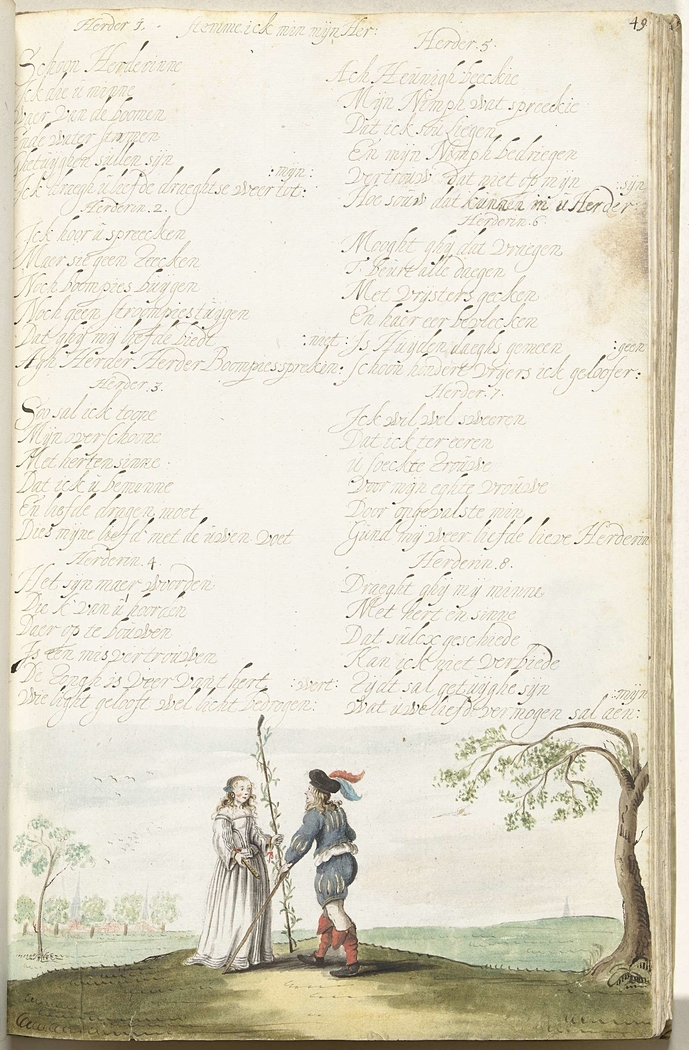 Herder 1. Stemme: ick min mijn Her:
Schoon Herderinne
Ick die u minne
hier van de boomen
Ende water stromen
Ghetuyghen sullen sijn :mijn:
Ick draegh u liefde draeghtse weer tot:
Herderin 2.
Ick hoor u spreecken
Maer sie geen teecken
Noch boompies buygen
Noch geen stroompies tuygen
Dat ghij mij liefde biedt :niet:
Agh Herder Herder Boompies spreken:
Herder 3.
Soo sal ick toone
Mijn overschoone
Met herten sinne:
Dat ick u beminne
En liefde dragen moet
Dies mijne liefd' met de uwen voet
Herderin 4.
Het sijn maer woorden
Die ick van u hoorden
Daer op te bouwen
Is een mis vertrouwen
De tongh is veer van't hert :wert:
Wie light gelooft wel licht bedrogen:
49
Herder 5.
Ach Heunigh beeckie
Mijn Nimph wat spreeckie
Dat ick sou liegen
En mijn Nimph bedriegen
Vertrouw dat niet op mijn :sijn
Hoe souw dat kunnen in u Herder:
Herderin 6.
Mooght ghij dat vraegen
T' beurt alle daegen
Met vrysters gecken
En haer eer bevlecken
Is huyden daeghs gemeen :geen
Schoon hondert vryers ick geloofer:
Herder 7.
Ick wil wel sweeren
Dat ick ter eeren
u soeckte trouwe
Voor mijn eghte vrouwe
Door ongevalste min
Gund mij weer liefde lieve Herderin
Herderin 8.
Draeght ghij mij minne
Met hert en sinne
Dat sulcx geschiede
Kan ick niet verbiede
Tijdt sal getuyghe sijn :mijn
Wat uwe liefd' vermogen sal aen: